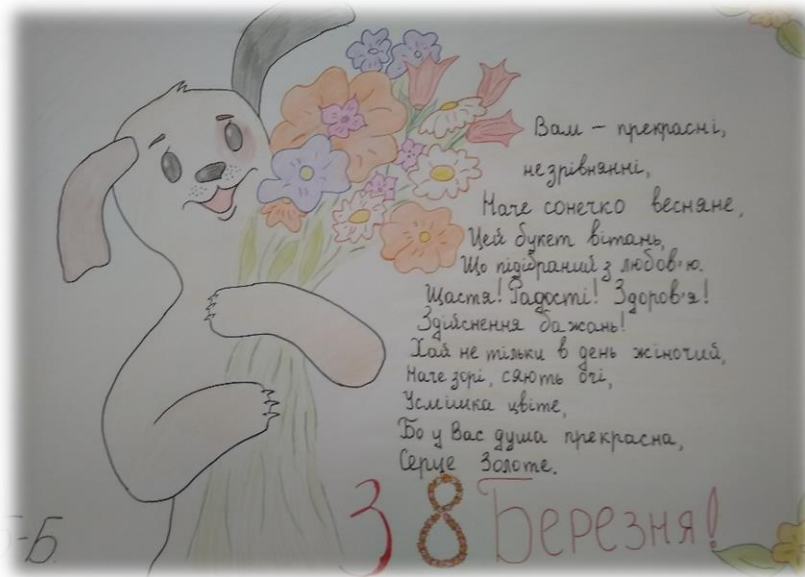 Вам – прекрасні,
незрівнянні,
Наче сонечко весняне,
Цей букет вітань,
Що підібраний з любов'ю.
Щастя! Радості! Здоров'я!
Здійснення бажань!
Хай не тільки в день жіночий,
Наче зорі, сяють очі,
Усмішка цвіте,
Бо у Вас душа прекрасна,
Серце Золоте.
З 8 Березня!
-Б